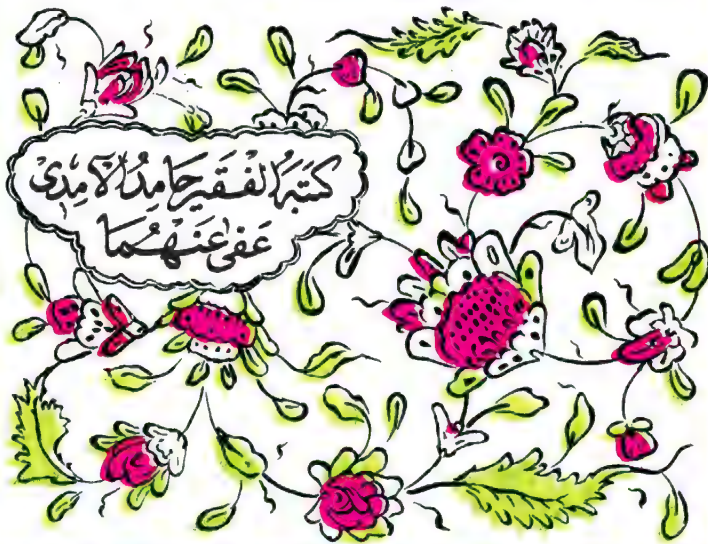 كَتَبَهُ الْفَقِير حَامِدُ الْآمِدِى
عَفٰى عَنْهُمَا